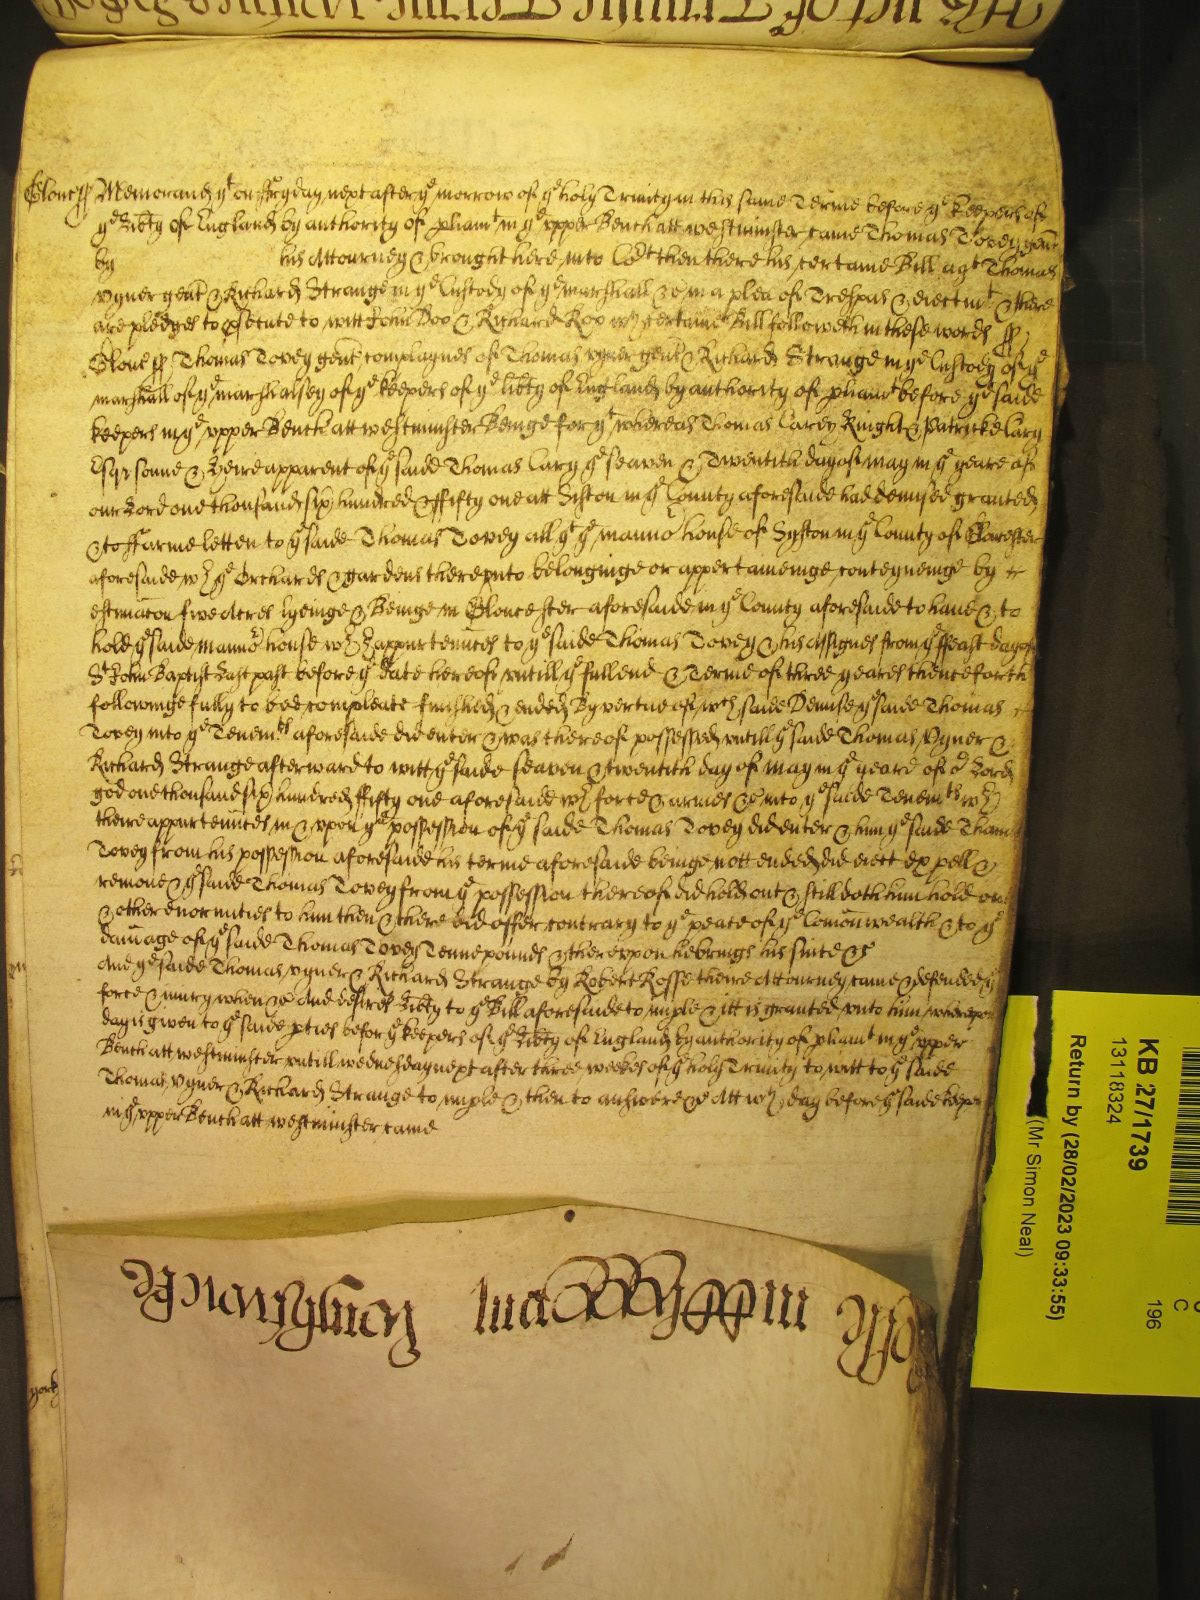 Glouc ss Memorand yt on ffryday next after ye morrow of ye holy Trinity in this same Terme before ye keepers of
ye Libty of England by authority of pliamt in ye upper Bench att westminster came Thomas Tovey gent
by his Attourney & brought here into Cort then there his certaine Bill agt Thomas
Vyner gent & Richard Strange in ye Custody of ye marshall &c in a plea of Trespas & eiectmt & there
are pledges to psecute to witt John Doo & Richard Roo wch certaine Bill followeth in these words ss
Glouc ss Thomas Tovey gent complaynes of Thomas vyner gent & Richard Strange in ye Custody of ye
marshall of ye marshalsey of ye keepers of ye libty of England by authority of pliamt before ye saide
keepers in ye upper Bench att westminster Beinge for yt whereas Thomas Carey Knight & Patricke Cary
Esqr sonne & Heire apparent of ye saide Thomas Cary ye seaven & Twentith day of may in ye yeare of
our Lord one thousand six hundred & ffifty one att Siston in ye County aforesaide had demised granted
& to ffarme letten to ye saide Thomas Tovey all yt ye mannor house of Syston in ye County of Glocester
aforesaide wth ye Orchards & gardens thereunto belonginge or appertaineinge conteyneinge by
estimacon five Acres lyeinge & Beinge in Gloucester aforesaide in ye County aforesaide to haue & to
hold ye saide mannor house wth thappurtenncs to ye saide Thomas Tovey & his Assignes from ye ffeast day of
St John Baptist Last past before ye date hereof untill ye full end & Terme of three yeares thenceforth
followinge fully to bee compleate finished & ended By vertue of wch saide Demise ye saide Thomas
Tovey into ye Tenemts aforesaide did enter & was thereof possessed untill ye saide Thomas Vyner &
Richard Strange afterward to witt ye saide seaven & twentith day of May in ye yeare of or Lord
god one thousand six hundred ffifty one aforesaide wth force & armes &c into ye saide Tenemts wth
there appurtenncs in & upon ye possession of ye saide Thomas Tovey did enter & him ye saide Thomas
Tovey from his possession aforesaide his terme aforesaide beinge nott ended did eiect expell &
remove & ye saide Thomas Tovey from ye possession thereof did hold out & still doth him hold out
& other enormities to him then & there did offer contrary to ye peace of ye Comonwealth & to ye
damage of ye saide Thomas Tovey Tenne pounds & thereupon he brings his suite &c
And ye saide Thomas vyner & Richard Strange by Robert Rosse theire Attourney came & defended ye
force & iniury when &c And desires Libty to ye Bill aforesaide to imple & itt is granted unto him whereupon
day is given to ye saide pties before ye keepers of ye Libty of England by authority of pliamt in ye upper
Bench att westminster untill wednesday next after three weekes of ye holy Trinity to witt to ye saide
Thomas Vyner & Richard Strange to imple & then to answere &c Att wch day before ye saide keepers
in ye upper Bench att westminster came
york
KB 27/1739
13118324
Return by (28/02/2023 09:33:55)
(Mr Simon Neal)
C
196